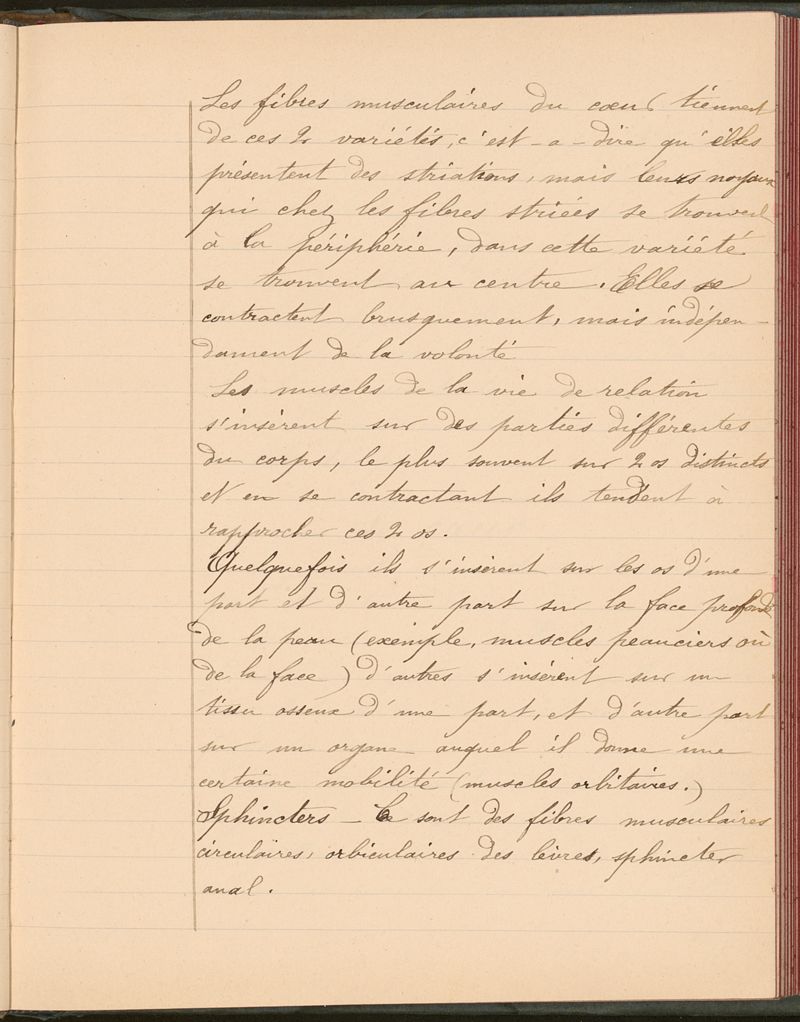 Les fibres musculaires du cœur tiennent
de ces 2 variétés, c'est-a-dire qu'elles
présentent des striations, mais leurs noyaux
qui chez les fibres striées se trouvent
à la périphérie, dans cette variété
se trouvent au centre. Elles se
contractent brusquement, mais indépen-
dament de la volonté
Les muscles de la vie de relation
s'insèrent sur des parties différentes
du corps, le plus souvent sur 2 os distincts
et en se contractant ils tendent à
rapprocher ces 2 os.
Quelquefois ils s'insèrent sur les os d'une
part et d'autre part sur la face profonde
de la peau (exemple, muscles peauciers ou
de la face) d'autres s'insèrent sur un
tissu osseux d'une part, et d'autre part
sur un organe auquel il donne une
certaine mobilité (muscles orbitaires.)
Sphincters - Ce sont des fibres musculaires
circulaires, orbiculaires des lèvres, sphincter
anal.